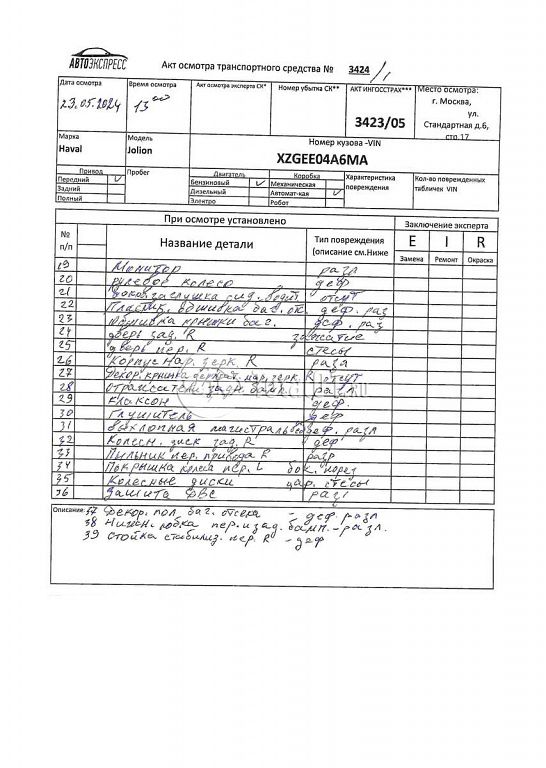 АВТОЭКСПРЕСС
Акт осмотра транспортного средства № 3424/1
Дата осмотра
23.05.2024
Время осмотра
13 00
Акт осмотра эксперта СК*
Номер убытка СК**
АКТ ИНГОССТРАХ***
3423/05
Место осмотра:
г. Москва,
ул.
Стандартная д.6,
стр.17
Марка
Haval
Модель
Jolion
Номер кузова -VIN
XZGEE04A6MA
Привод
Передний
Задний
Полный
Пробег
Двигатель
Бензиновый
Дизельный
Электро
Коробка
Механическая
Автомат-кая
Робот
Характеристика повреждения
Кол-во поврежденных табличек VIN
№ п/п
При осмотре установлено
Название детали
Тип повреждения (описание см.Ниже
Заключение эксперта
E I R
Замена Ремонт Окраска
19 Монитор разл
20 рулевое колесо деф
21 заглушка сид. водит отсут
22 Пластик. обшивка баг. от. деф. раз
23 Обшивка крышки баг. деф. раз
24 дверь зад. R замятие
25 дверь пер. R стесы
26 Корпус нар. зерк. R разл
27 Декор. крышка нар. зерк. R отсут
28 Отражатель задн. бамп. разл
29 Клаксон деф.
30 Глушитель деф
31 Выхлопная магистраль деф. разл
32 Колесн. диск зад. R деф
33 Пыльник пер. привода R разр
34 Покрышка колеса пер. L бок. порез
35 Колесные диски цар. стесы
36 Защита ДВС разл
Описание: 37 Декор. пол. баг. отсека - деф. разл
38 Нижн. юбка пер. и зад. бамп. - разл.
39 Стойка стабилиз. пер. R - деф